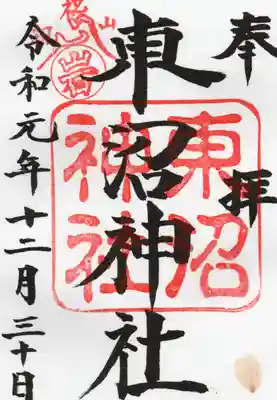 奉拝
東沼神社
令和元年十二月三十日
東沼
神社